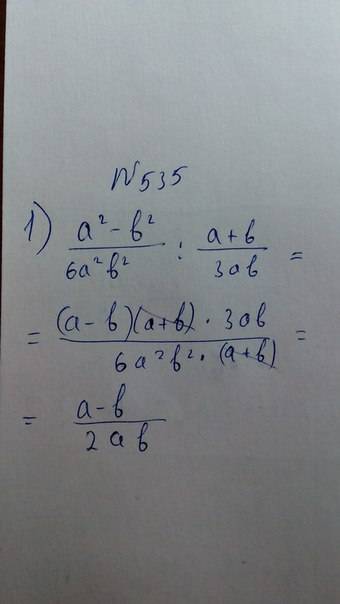 №535
1) a² - b² / 6a²b² : a + b / 3ab =
= (a - b)(a + b) · 3ab / 6a²b² · (a + b) =
= a - b / 2ab